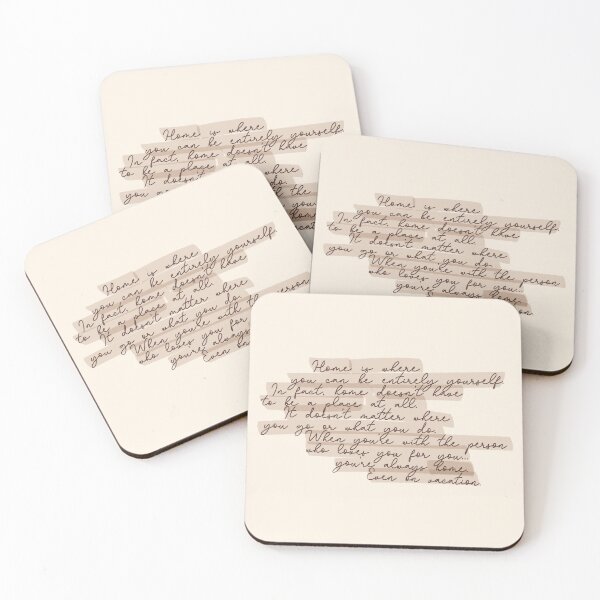 Home is where
you can be entirely yourself.
In fact, home doesn't have
to be a place at all.
It doesn't where
you the
home
Home is where
you can be entirely yourself.
In fact, home doesn't have
to be a place at all.
It doesn't matter where
you go or what you do.
When you're with the person
who loves you for you...
you're always home.
Home is where
you can be entirely yourself.
In fact, home doesn't have
to be a place at all.
It doesn't matter where
you go or what you do.
When you're with the person
who loves you for
you're always
Even
Home is where
you can be entirely yourself.
In fact, home doesn't have
to be a place at all.
It doesn't matter where
you go or what you do.
When you're with the person
who loves you for you...
you're always home.
Even on vacation.